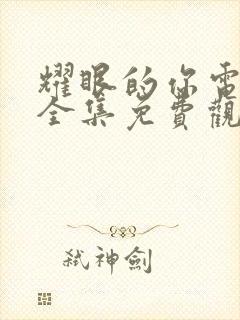 耀眼的你電
全集免費觀
弒神劍